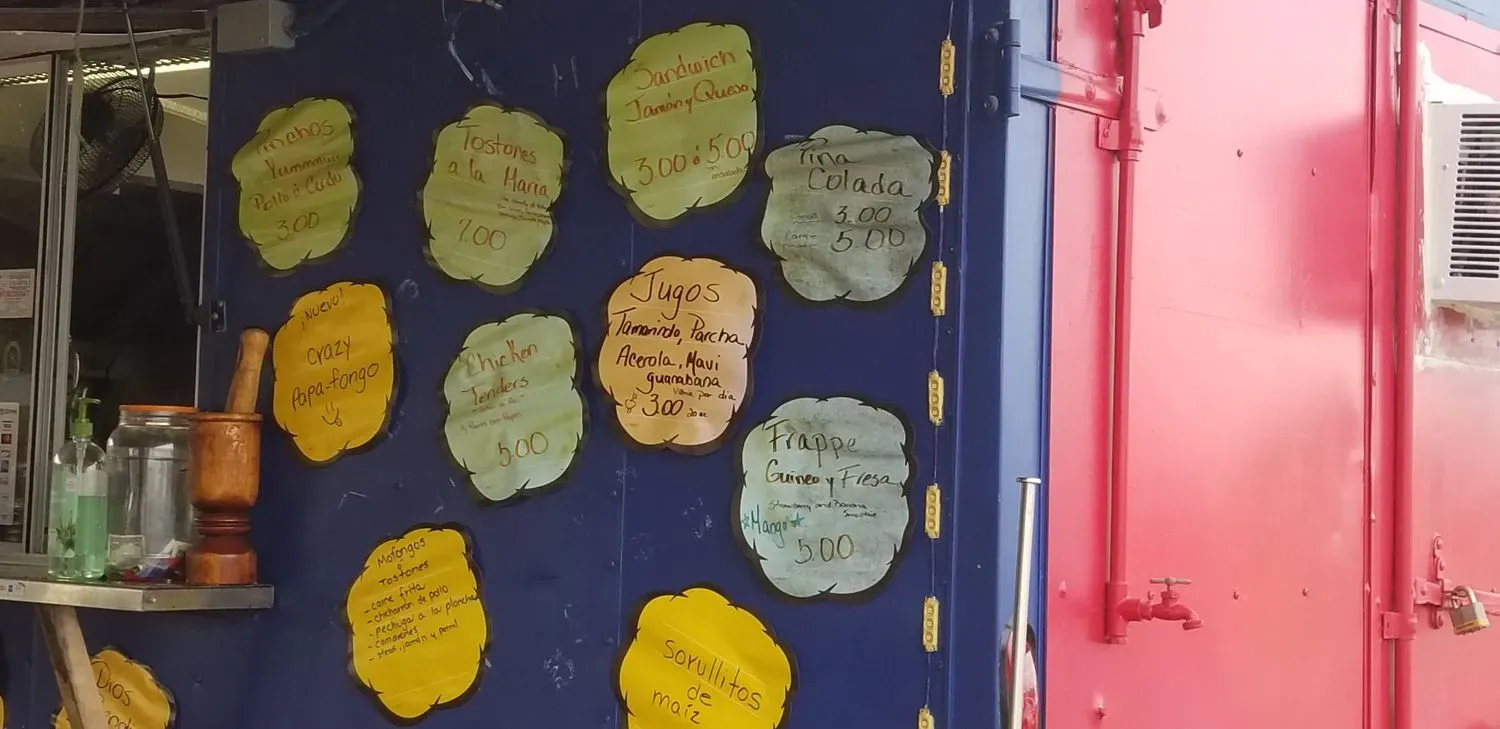 Pinchos
Yummmm
Pollo ó Cerdo
3.00
Tostones
a la Maria
7.00
Sandwich
Jamón y Queso
3.00 ó 5.00
Pina
Colada
3.00
5.00
¡Nuevo!
Crazy
Papa-fongo
Chicken
Tenders
5.00
Jugos
Tamarindo, Parcha
Acerola, Mavi
guanabana
Varia por dia
3.00
Frappe
Guineo y Fresa
Strawberry and Banana
Smoothie
*Mango*
5.00
Mofongos
o
Tostones
- carne frita
- chicharron de pollo
- pechuga a la plancha
- camarones
- steak, jamón y pernil
Sorullitos
de
maiz
Dios